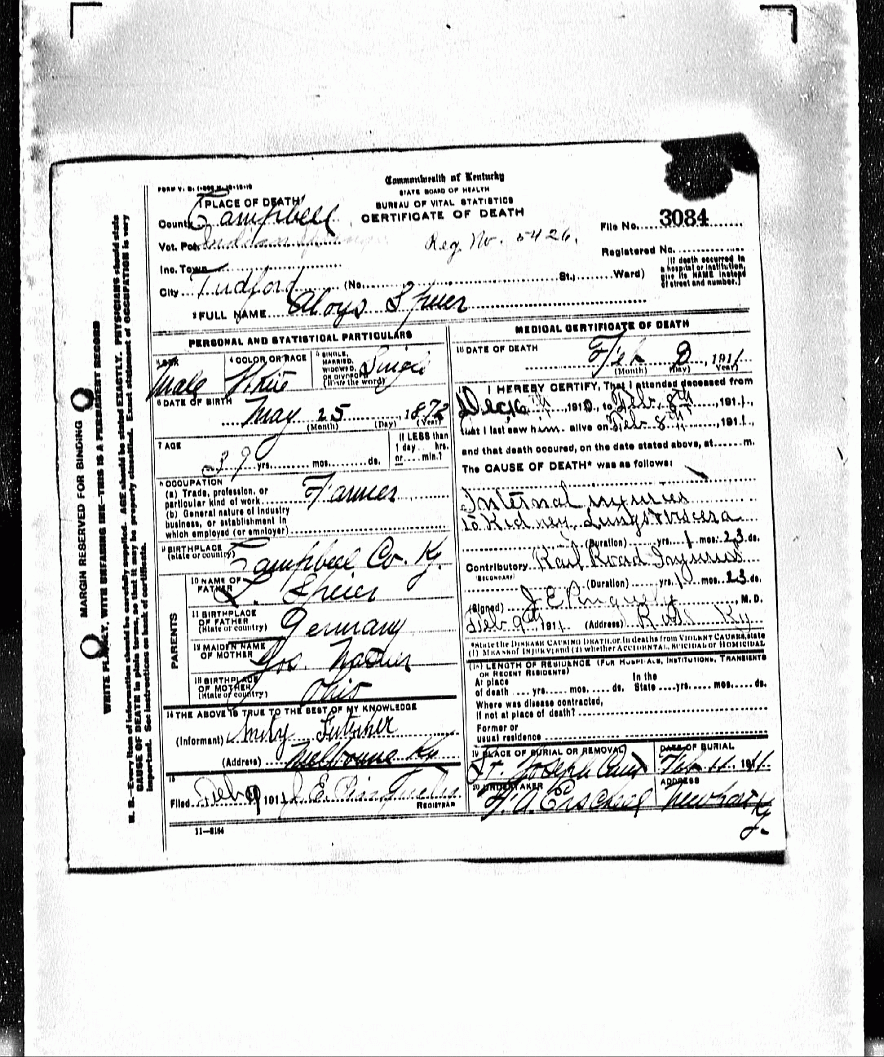 FORM V. S. 1-
Commonwealth of Kentucky
STATE BOARD OF HEALTH
BUREAU OF VITAL STATISTICS
CERTIFICATE OF DEATH
1 PLACE OF DEATH
County Campbell
Vot. Pct.
Reg. No. 5426.
File No. 3084
Inc. Town
Registered No.
City (No. St.; Ward)
(If death occurred in a hospital or institution, give its NAME instead of street and number.)
2 FULL NAME Aloys Speier
PERSONAL AND STATISTICAL PARTICULARS
3 SEX
Male
4 COLOR OR RACE
White
5 SINGLE, MARRIED, WIDOWED, OR DIVORCED (Write the word)
Single
6 DATE OF BIRTH
May 25, 1872
(Month) (Day) (Year)
7 AGE
39 yrs. mos. ds.
If LESS than 1 day hrs. or min.?
8 OCCUPATION
(a) Trade, profession, or particular kind of work Farmer
(b) General nature of industry business, or establishment in which employed (or employer)
9 BIRTHPLACE
(State or country) Campbell Co. Ky.
PARENTS
10 NAME OF FATHER Speier
11 BIRTHPLACE OF FATHER
(State or country) Germany
12 MAIDEN NAME OF MOTHER
13 BIRTHPLACE OF MOTHER
(State or country) Ohio
14 THE ABOVE IS TRUE TO THE BEST OF MY KNOWLEDGE
(Informant)
(Address) Melbourne Ky
15
Filed Feb 191 J. E.
REGISTRAR
11—3184
MEDICAL CERTIFICATE OF DEATH
16 DATE OF DEATH
Feb 8, 1911
(Month) (Day) (Year)
I HEREBY CERTIFY, That I attended deceased from
Dec 16th 1910, to Feb. 8th, 1911,
that I last saw him alive on Feb. 8th, 1911,
and that death occured, on the date stated above, at m.
The CAUSE OF DEATH* was as follows:
Internal injuries
to Kidney Lungs & Viscera
(Duration) yrs. 1 mos. 23 ds.
Contributory Rail Road Injuries
(SECONDARY)
(Duration) yrs. 1 mos. 23 ds.
(Signed) J E M. D.
Feb. 9th, 1911 (Address) Ky
*State the DISEASE CAUSING DEATH, or, in deaths from VIOLENT CAUSES, state (1) MEANS OF INJURY; and (2) whether ACCIDENTAL, SUICIDAL or HOMICIDAL
18 LENGTH OF RESIDENCE (FOR HOSPITALS, INSTITUTIONS, TRANSIENTS OR RECENT RESIDENTS)
At place of death yrs. mos. ds. In the State yrs. mos. ds.
Where was disease contracted, if not at place of death?
Former or usual residence
19 PLACE OF BURIAL OR REMOVAL
St. Joseph Cem
DATE OF BURIAL
Feb 11 1911
20 UNDERTAKER
ADDRESS
Newport Ky
MARGIN RESERVED FOR BINDING
WRITE PLAINLY, WITH UNFADING INK—THIS IS A PERMANENT RECORD
N. B.—Every item of information should be carefully supplied. AGE should be stated EXACTLY. PHYSICIANS should state CAUSE OF DEATH in plain terms, so that it may be properly classified. Exact statement of OCCUPATION is very important. See instructions on back of certificate.